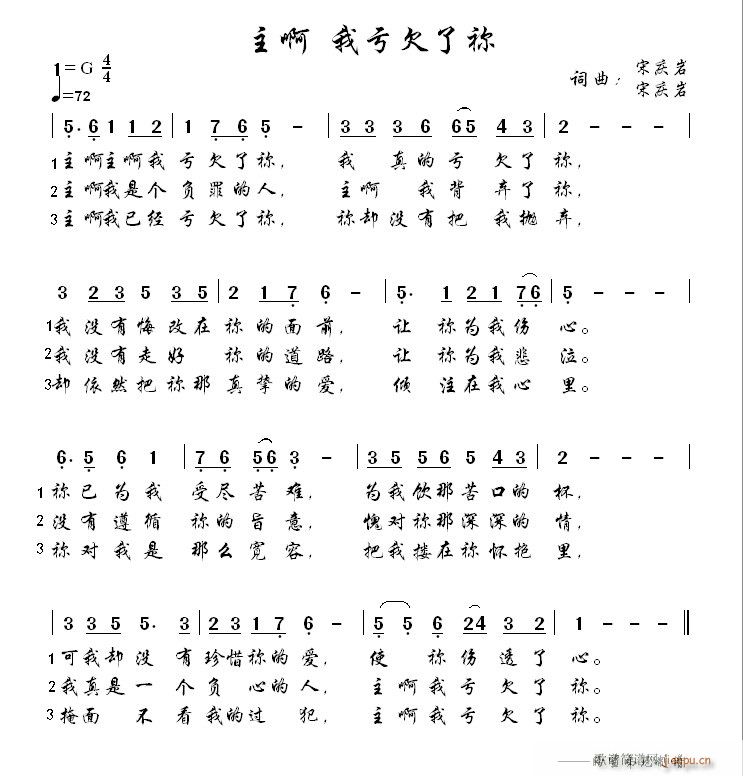 主啊 我亏欠了祢
1=G 4/4
♩=72
词曲：宋庆岩
宋庆岩
| 5. 6 1 1 2 | 1 7 6 5 － | 3 3 3 6 6 5 4 3 | 2 － － － |
1 主啊主啊我亏欠了祢， 我真的亏欠了祢，
2 主啊我是个负罪的人， 主啊我背弃了祢，
3 主啊我已经亏欠了祢， 祢却没有把我抛弃，
3 2 3 5 3 5 | 2 1 7 6 － | 5. 1 2 1 7 6 | 5 － － － |
1 我没有悔改在祢的面前， 让祢为我伤心。
2 我没有走好祢的道路， 让祢为我悲泣。
3 却依然把祢那真挚的爱， 倾注在我心里。
6. 5 6 1 | 7 6 5 6 3 － | 3 5 5 6 5 4 3 | 2 － － － |
1 祢已为我受尽苦难， 为我饮那苦口的杯，
2 没有遵循祢的旨意， 愧对祢那深深的情，
3 祢对我是那么宽容， 把我搂在祢怀抱里，
| 3 3 5 5. 3 | 2 3 1 7 6 － | 5 5 6 2 4 3 2 | 1 － － － ‖
1 可我却没有珍惜祢的爱， 使祢伤透了心。
2 我真是一个负心的人， 主啊我亏欠了祢。
3 掩面不看我的过犯， 主啊我亏欠了祢。